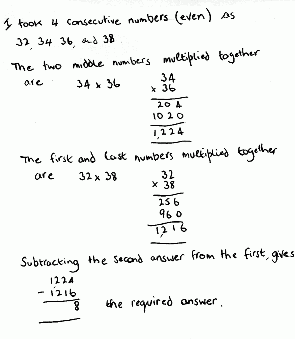 I took 4 consecutive numbers (even) as
32, 34 36, and 38
The two middle numbers multiplied together
are 34 x 36
34
x 36
204
1020
1,224
The first and last numbers multiplied together
are 32 x 38
32
x 38
256
960
1216
Subtracting the second answer from the first, gives
1224
- 1216
8 the required answer.